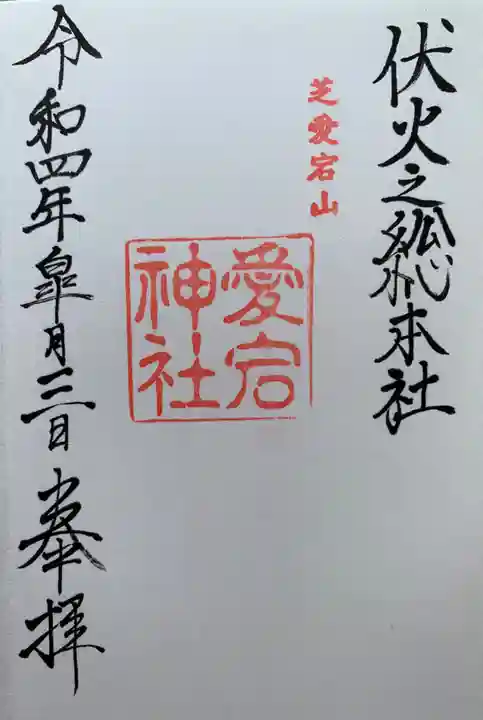 伏火之総本社
芝愛宕山
愛宕
神社
令和四年皐月三日参拝